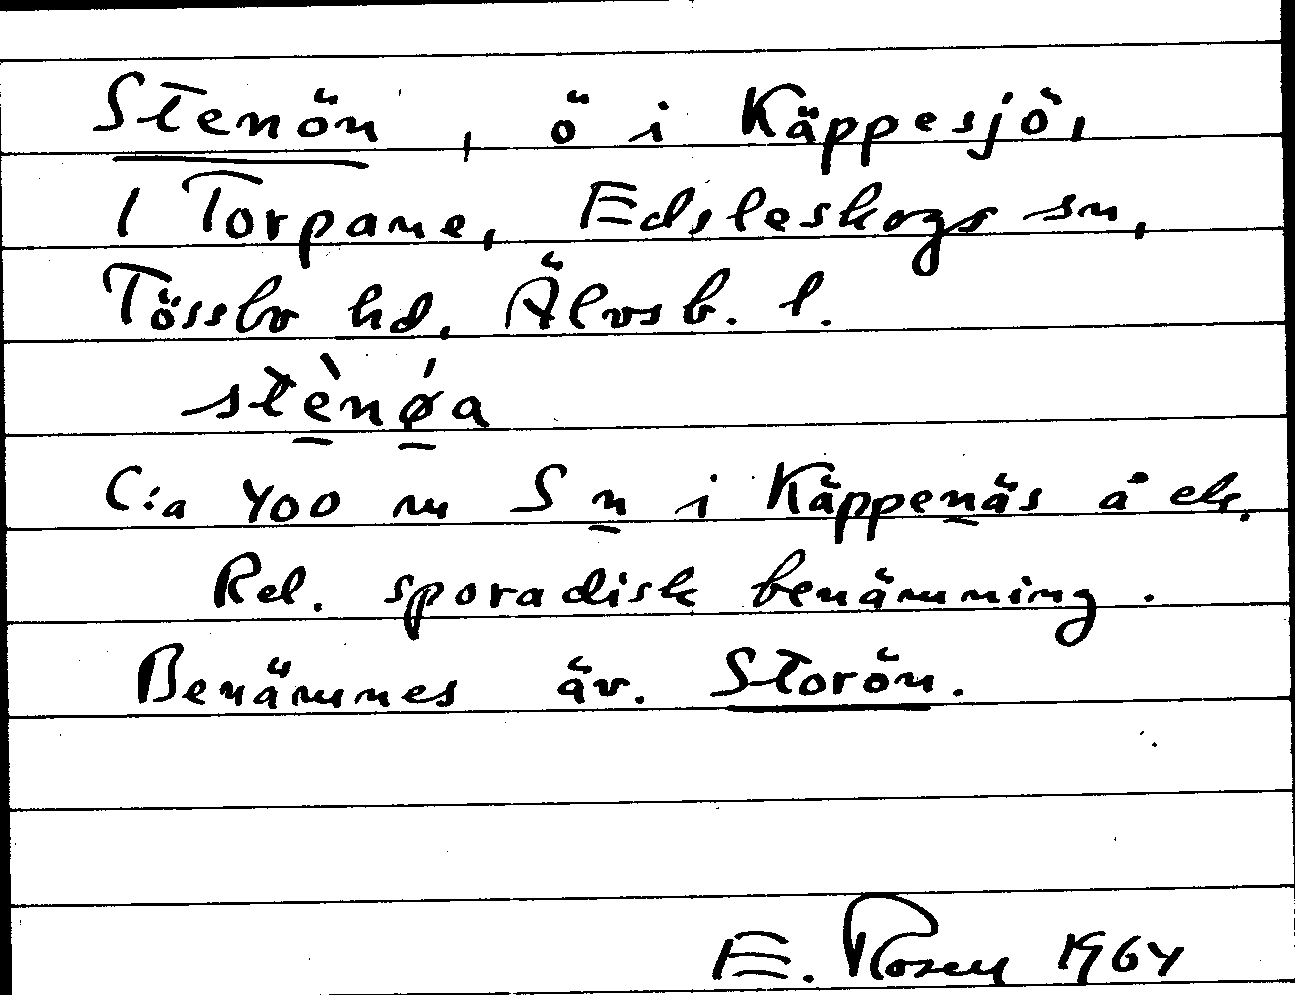 Stenön, ö i Käppesjö,
1 Torpane, Edsleskogs sn,
Tössbo hd. Älvsb. l.
stènǿa
C:a 400 m S n i Käppenäs å ek.
Rel. sporadisk benämning.
Benämnes äv. Storön.
E. Rosen 1964